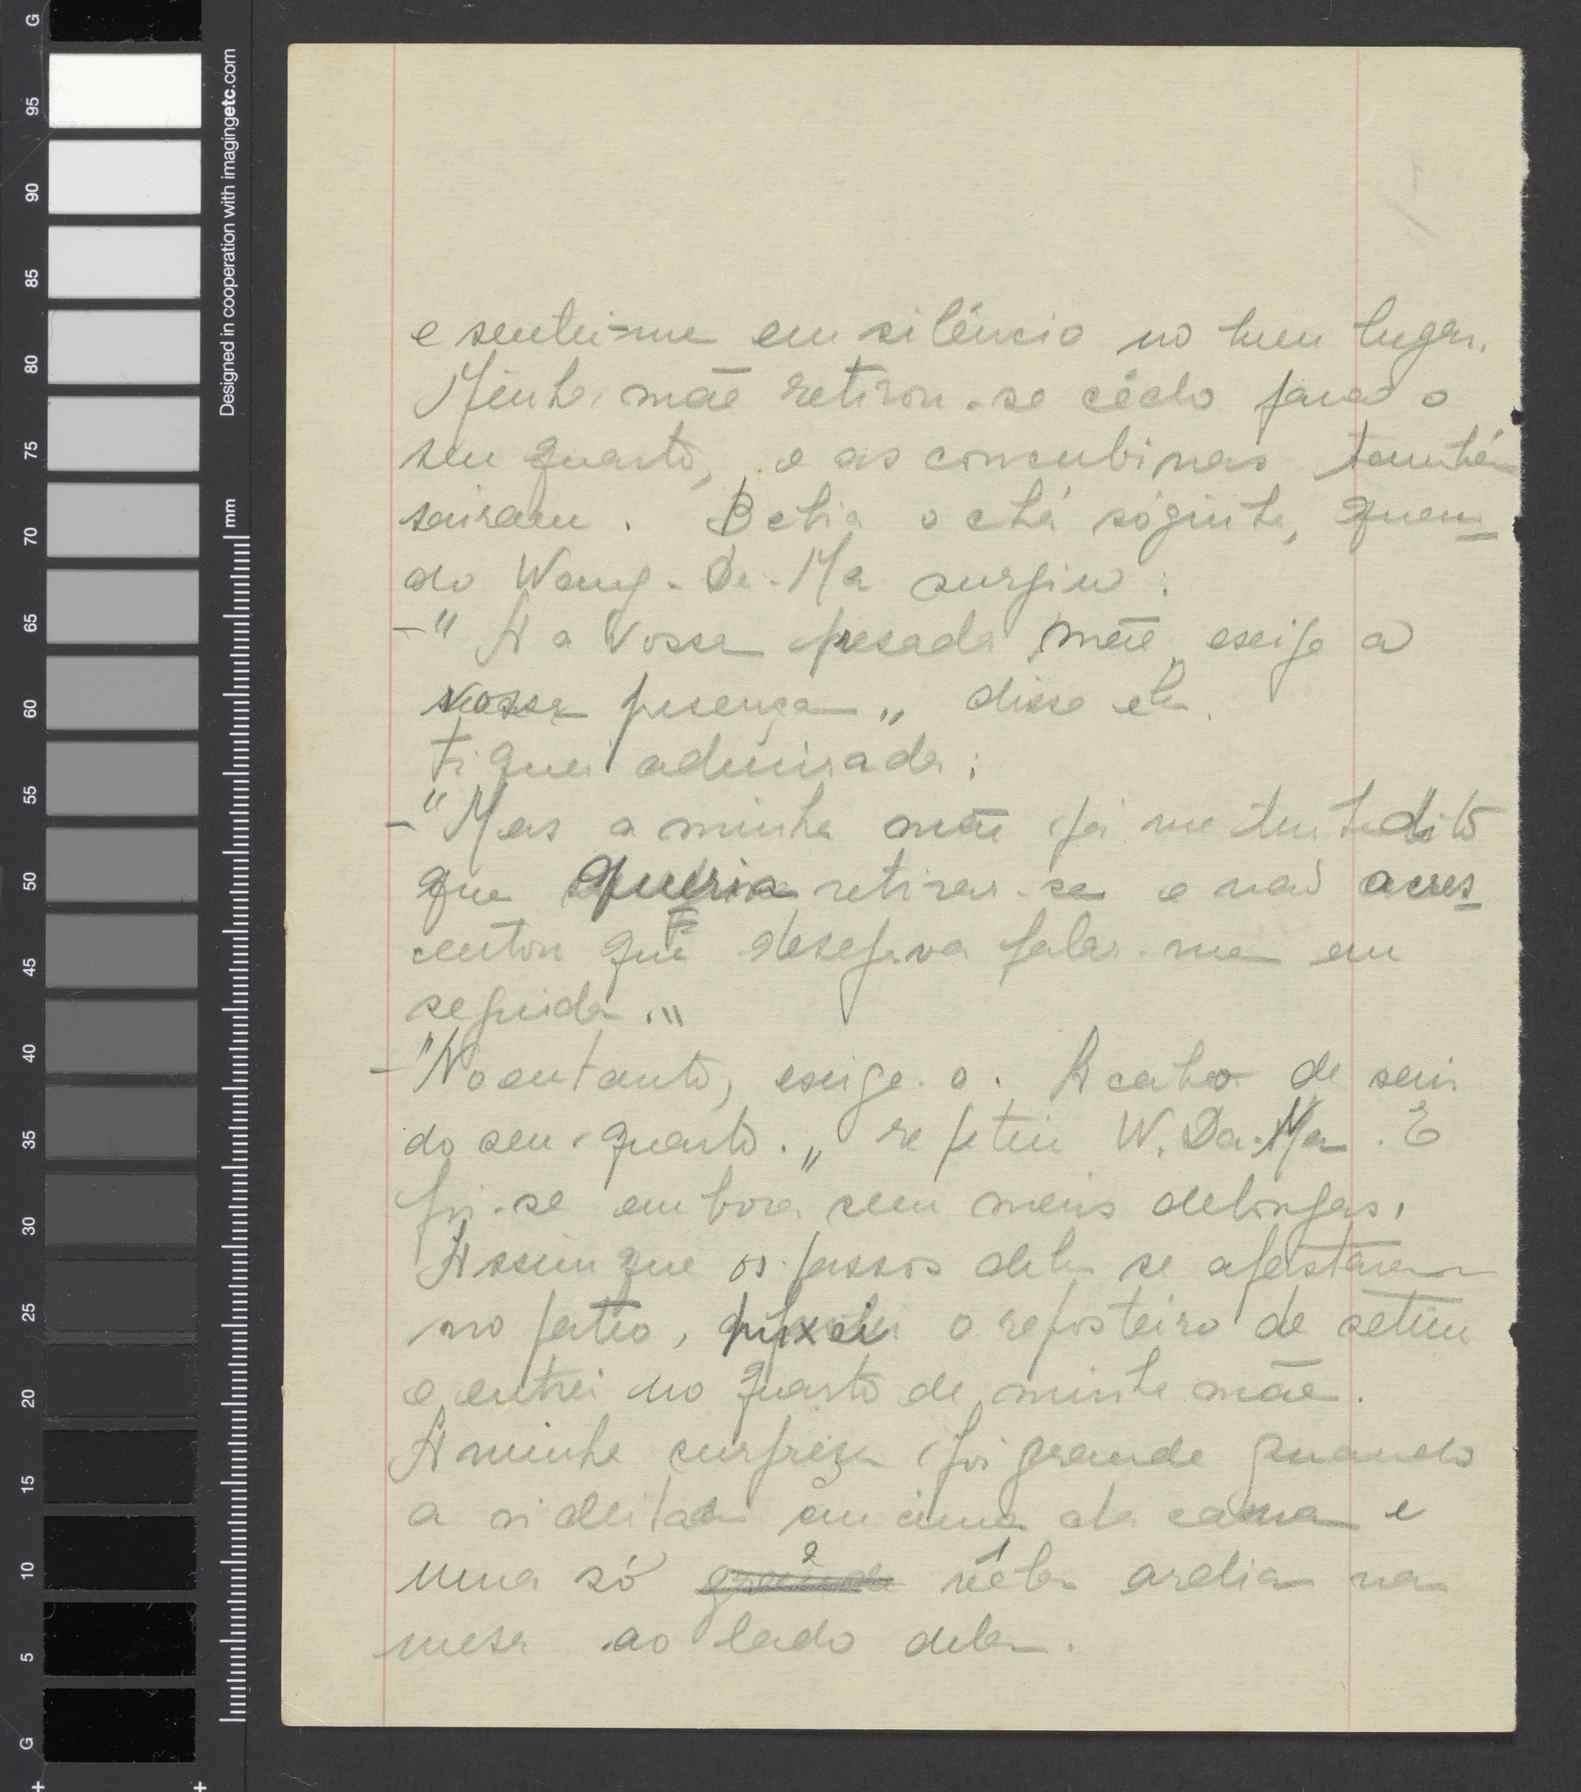 G
95
90
85
80
75
70
65
60
55
50
45
40
35
30
25
20
15
10
5
G
Designed in cooperation with imagingetc.com
mm
e sentei-me em silêncio no meu lugar.
Minha mãe retirou-se cêdo para o
seu quarto, e as concubinas também
sairam. Bebia o chá sósinha, quan
do Wang-Da-Ma surgiu:
-" A a vossa presada mãe exige a
vossa presença „ disse ela.
Fiquei admirada:
-"Mas a minha mãe já me tinha dito
que queria retirar-se e não acres
centou que desejava falar-me em
seguida."
-"No entanto, exige-o. Acabo de sair
do seu quarto.„ repetiu W. Da-Ma. E
foi-se embora sem mais delongas.
Assim que os passos dela se afastaram
no pateo, puxei o reposteiro de setim
e entrei no quarto de minha mãe.
A minha surpreza foi grande quando
a vi deitada em cima da cama e
uma só véla ardia na
mesa ao lado dela.